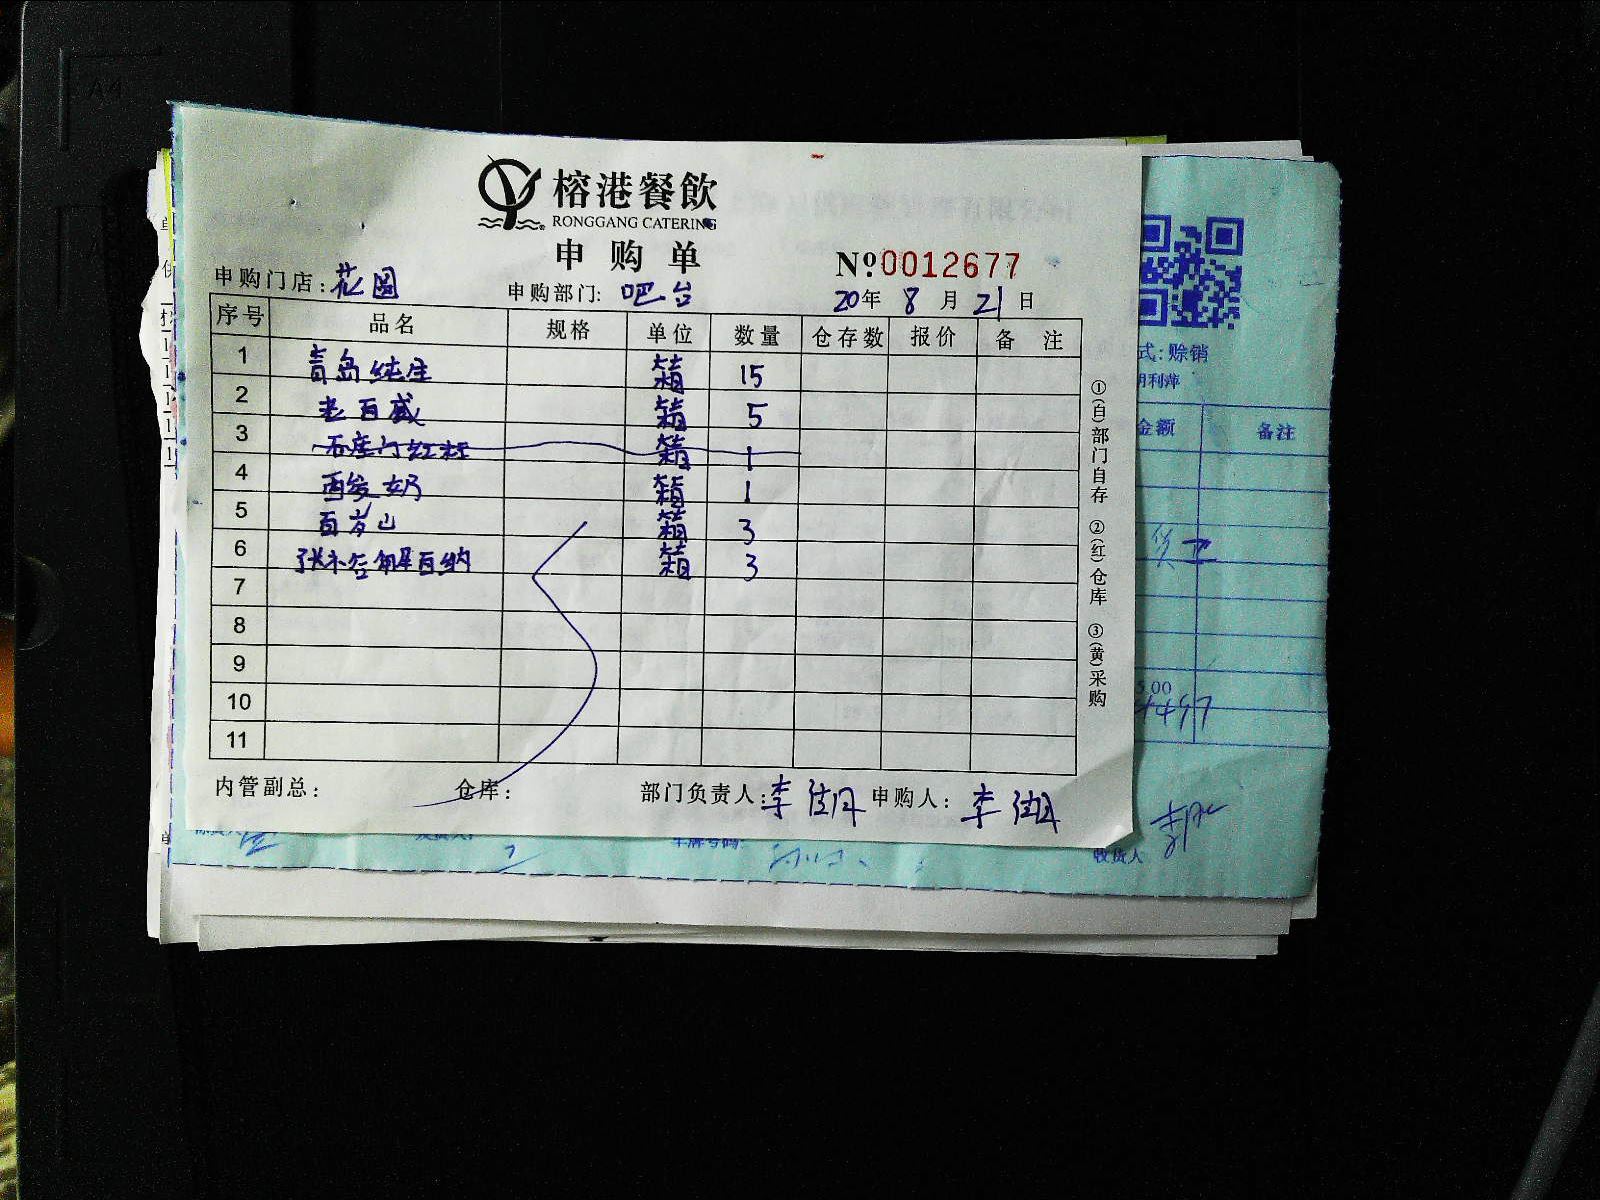 榕港餐飲
RONGGANG CATERING
申购单
№0012677
申购门店:花园 申购部门:吧台 20年8月21日
序号 品名 规格 单位 数量 仓存数 报价 备注
1 青岛纯生 箱 15
2 老百威 箱 5
3 石库门红标 箱 1
4 酸奶 箱 1
5 百岁山 箱 3
6 张裕解百纳 箱 3
7
8
9
10
11
内管副总: 仓库: 部门负责人:李 申购人:李
①(白)部门自存 ②(红)仓库 ③(黄)采购
式:赊销
明利萍
金额 备注
5.00
收货人
A4